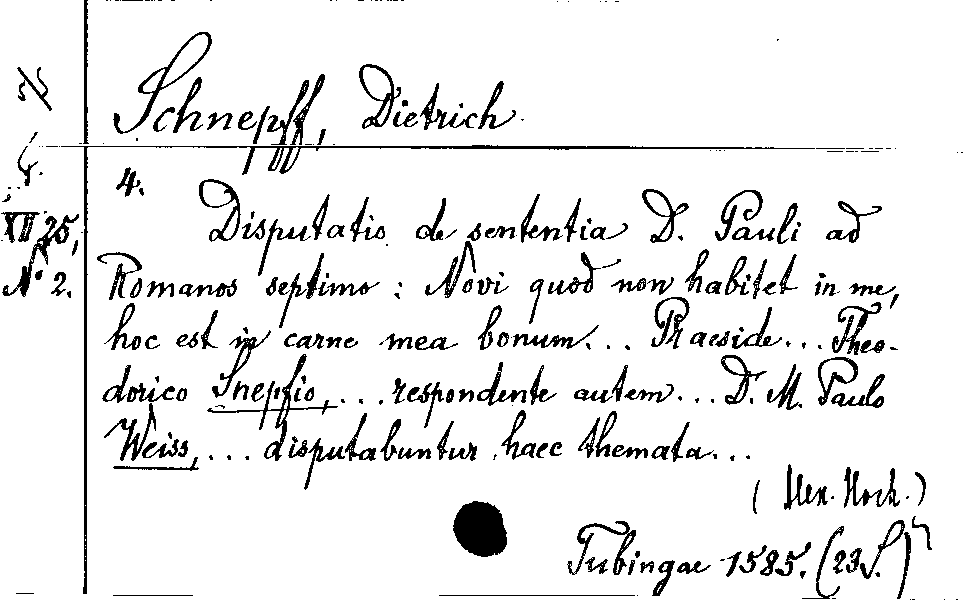 Schnepff, Dietrich
4.
XII 25,
No 2.
Disputatio de sententia D. Pauli ad
Romanos septimo: Novi quod non habitet in me,
hoc est in carne mea bonum... Praeside... Theo-
dorico Snepfio,... respondente autem... D. M. Paulo
Weiss,... disputabuntur haec themata...
(Alex. Hock.)
Tubingae 1585. (23 S.)